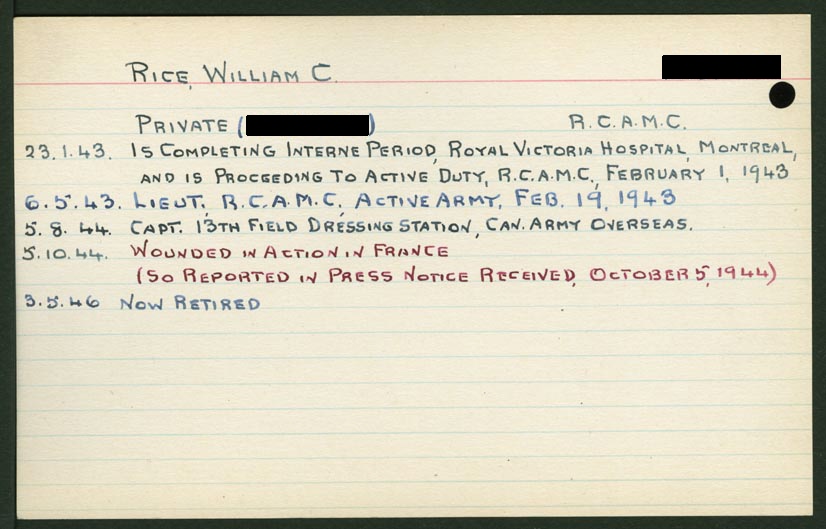 RICE, WILLIAM C.
PRIVATE ( ) R.C.A.M.C.
23.1.43. IS COMPLETING INTERNE PERIOD, ROYAL VICTORIA HOSPITAL, MONTREAL,
AND IS PROCEEDING TO ACTIVE DUTY, R.C.A.M.C., FEBRUARY 1, 1943
6.5.43. LIEUT. R.C.A.M.C., ACTIVE ARMY, FEB. 19, 1943
5.8.44. CAPT. 13TH FIELD DRESSING STATION, CAN. ARMY OVERSEAS.
5.10.44. WOUNDED IN ACTION IN FRANCE
(SO REPORTED IN PRESS NOTICE RECEIVED, OCTOBER 5, 1944)
3.5.46 NOW RETIRED